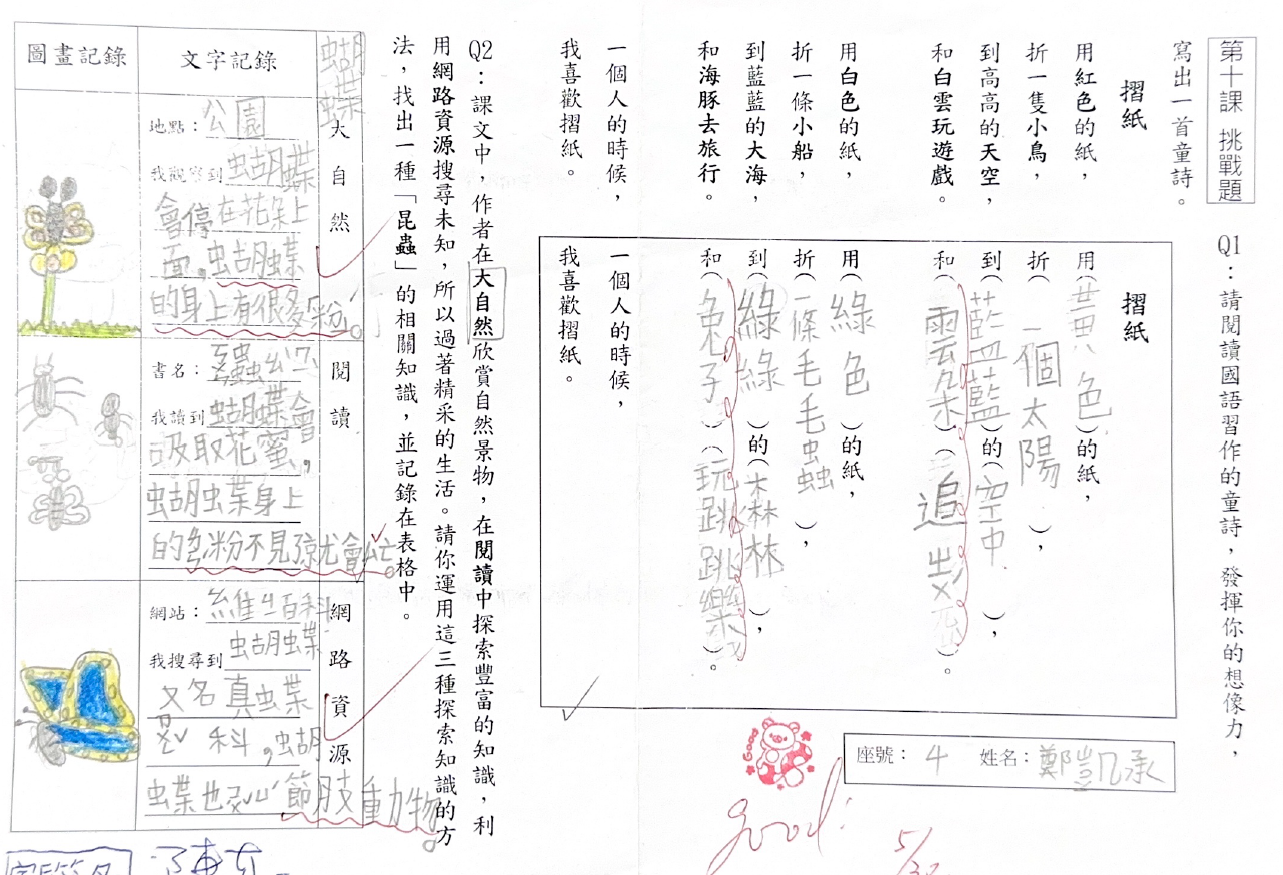 第十課 挑戰題
Q1：請閱讀國語習作的童詩，發揮你的想像力，
寫出一首童詩。
摺紙
用紅色的紙，
折一隻小鳥，
到高高的天空，
和白雲玩遊戲。
用白色的紙，
折一條小船，
到藍藍的大海，
和海豚去旅行。
一個人的時候，
我喜歡摺紙。
摺紙
用（黃色）的紙，
折（一個太陽），
到（藍藍）的（空中），
和（雲朵）（追）。
用（綠色）的紙，
折（一條毛毛蟲），
到（綠綠）的（森林），
和（兔子）（玩跳跳樂）。
一個人的時候，
我喜歡摺紙。
座號：4 姓名：鄭凱承
Good
good!
5/30
Q2：課文中，作者在大自然欣賞自然景物，在閱讀中探索豐富的知識，利
用網路資源搜尋未知，所以過著精采的生活。請你運用這三種探索知識的方
法，找出一種「昆蟲」的相關知識，並記錄在表格中。
蝴蝶
大自然
文字記錄
圖畫記錄
地點：公園
我觀察到蝴蝶
會停在花朵上
面，蝴蝶
的身上有很多粉。
閱讀
書名：
我讀到蝴蝶會
吸取花蜜，
蝴蝶身上
的粉不見就會。
網路資源
網站：維百科
我搜尋到蝴蝶
又名真蝶
科，蝴
蝶也是節肢動物。